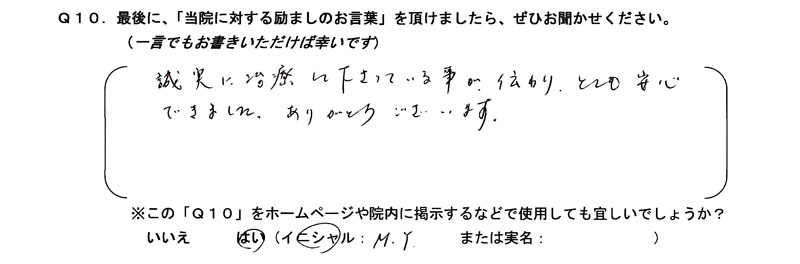 Q10．最後に、「当院に対する励ましのお言葉」を頂けましたら、ぜひお聞かせください。
（一言でもお書きいただけば幸いです）
誠実に治療して下さっている事が、伝わり、とても安心
できました。ありがとうございます。
※この「Q10」をホームページや院内に掲示するなどで使用しても宜しいでしょうか？
いいえ　はい（イニシャル：M.Y.　または実名：　）